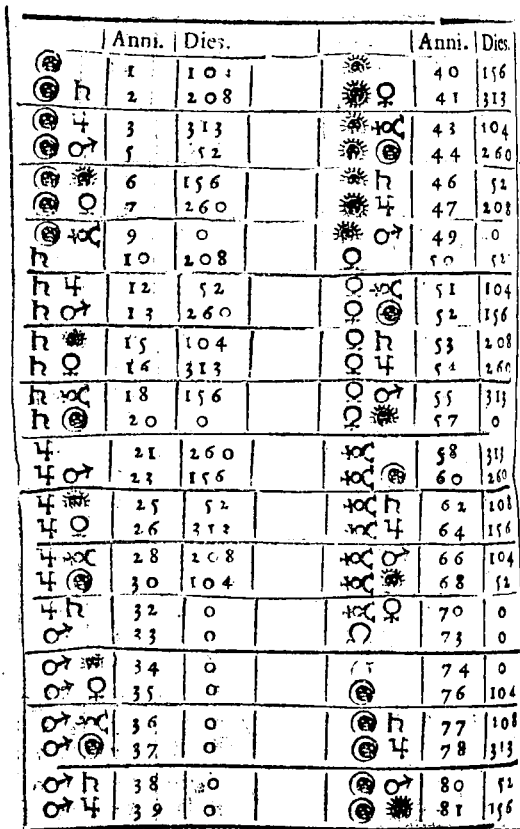 Anni. Dies. Anni. Dies.
☽ 1 104 ☉ 40 156
☽ ♄ 2 208 ☉ ♀ 41 313
☽ ♃ 3 313 ☉ ☿ 43 104
☽ ♂ 5 52 ☉ ☽ 44 260
☽ ☉ 6 156 ☉ ♄ 46 52
☽ ♀ 7 260 ☉ ♃ 47 208
☽ ☿ 9 0 ☉ ♂ 49 0
♄ 10 208 ♀ 50 52
♄ ♃ 12 52 ♀ ☿ 51 104
♄ ♂ 13 260 ♀ ☽ 52 156
♄ ☉ 15 104 ♀ ♄ 53 208
♄ ♀ 16 313 ♀ ♃ 54 260
♄ ☿ 18 156 ♀ ♂ 55 313
♄ ☽ 20 0 ♀ ☉ 57 0
♃ 21 260 ☿ 58 313
♃ ♂ 23 156 ☿ ☽ 60 260
♃ ☉ 25 52 ☿ ♄ 62 108
♃ ♀ 26 313 ☿ ♃ 64 156
♃ ☿ 28 208 ☿ ♂ 66 104
♃ ☽ 30 104 ☿ ☉ 68 52
♃ ♄ 32 0 ☿ ♀ 70 0
♂ 33 0 73 0
♂ ☉ 34 0 74 0
♂ ♀ 35 0 ☽ 76 104
♂ ☿ 36 0 ☽ ♄ 77 108
♂ ☽ 37 0 ☽ ♃ 78 313
♂ ♄ 38 0 ☽ ♂ 80 52
♂ ♃ 39 0 ☽ ☉ 81 156